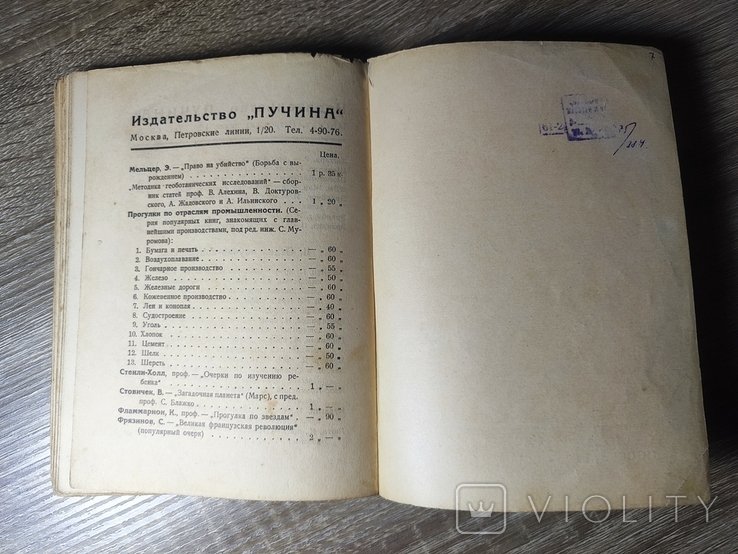 Издательство „ПУЧИНА“
Москва, Петровские линии, 1/20. Тел. 4-90-76.
Цена.
Мельцер, Э. — „Право на убийство“ (Борьба с вы-
рождением) 1 р. 35 к.
„Методика геоботанических исследований“ — сбор-
ник статей проф. В. Алехина, В. Доктуров-
ского, А. Жадовского и А. Ильинского 1 „ 20 „
Прогулки по отраслям промышленности. (Се-
рия популярных книг, знакомящих с глав-
нейшими производствами, под ред. инж. С. Му-
ромова):
1. Бумага и печать — „ 60 „
2. Воздухоплавание — „ 60 „
3. Гончарное производство — „ 55 „
4. Железо — „ 50 „
5. Железные дороги — „ 60 „
6. Кожевенное производство — „ 60 „
7. Лен и конопля — „ 40 „
8. Судостроение — „ 60 „
9. Уголь — „ 55 „
10. Хлопок — „ 60 „
11. Цемент — „ 60 „
12. Шелк — „ 50 „
13. Шерсть — „ 60 „
Стенли-Холл, проф. — „Очерки по изучению ре-
бенка“ 1 „ — „
Стовичек, В. — „Загадочная планета“ (Марс), с пред.
проф. С. Блажко 1 „ — „
Фламмарион, К., проф. — „Прогулка по звездам“ — „ 90 „
Фрязинов, С. — „Великая французская революция“
(популярный очерк) 2 „ — „
VIOLITY